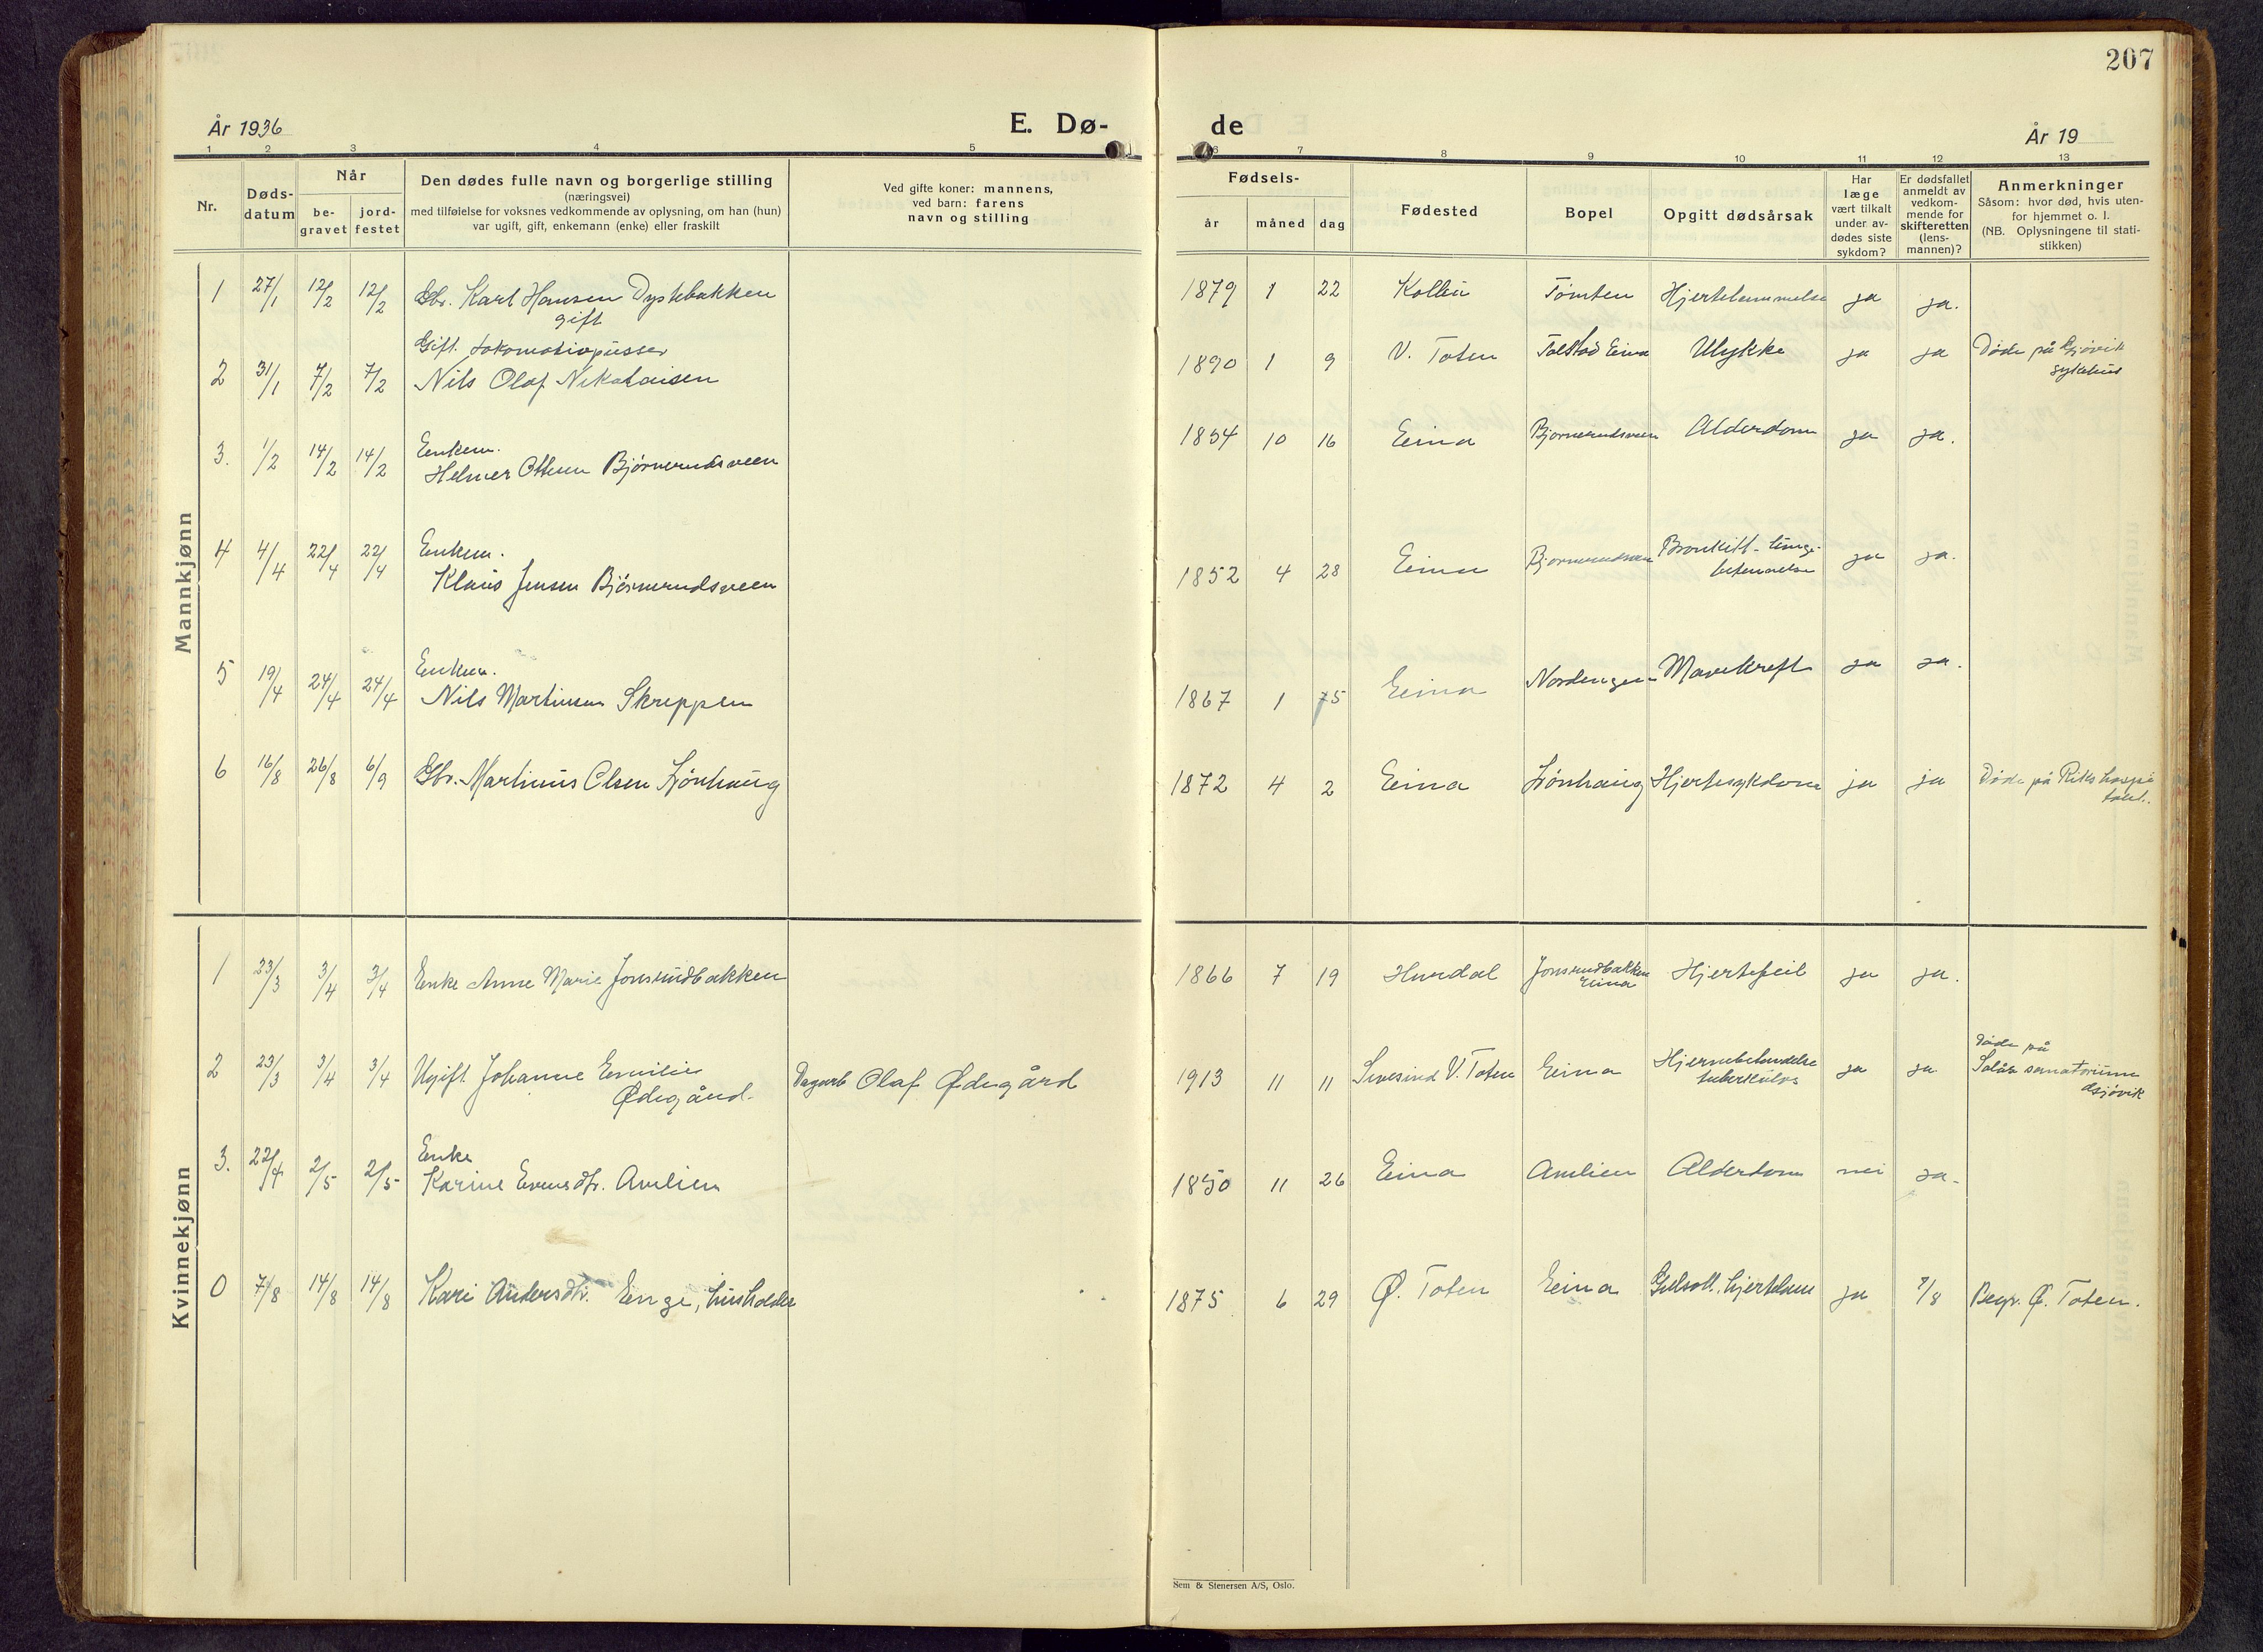 207
År 1936
E. Dø-
de
År 19
1 2 3 4 5
6 7 8 9 10 11 12 13
Nr.
Døds-
datum
Når
be-
gravet
jord-
festet
Den dødes fulle navn og borgerlige stilling
(næringsvei)
med tilføielse for voksnes vedkommende av oplysning, om han (hun)
var ugift, gift, enkemann (enke) eller fraskilt
Ved gifte koner: mannens,
ved barn: farens
navn og stilling
Fødsels-
år måned dag
Fødested
Bopel
Opgitt dødsårsak
Har
læge
vært tilkalt
under av-
dødes siste
sykdom?
Er dødsfallet
anmeldt av
vedkom-
mende for
skifteretten
(lens-
mannen)?
Anmerkninger
Såsom: hvor død, hvis uten-
for hjemmet o. l.
(NB. Oplysningene til stati-
stikken)
Mannkjønn
1 27/1 12/2 12/2 Gbr. Karl Hansen Dystebakken
gift
1879 1 22 Kolbu Tömten Hjertelammelse ja ja.
Gift. Lokomotivpusser
2 31/1 7/2 7/2 Nils Olaf Nikolaisen
1890 1 9 V. Toten Tolstad Eina Ulykke ja ja Døde på Gjøvik
sykehus
Enkem.
3. 1/2 14/2 14/2 Helmer Ottesen Bjørnerudsveen
1854 10 16 Eina Bjørnerudsveen Alderdom ja ja.
Enkem.
4 4/4 22/4 22/4 Klaus Jensen Bjørnerudsveen
1852 4 28 Eina Bjørnerudsveen Bronkitt - lunge-
betennelse ja ja.
Enkem.
5 19/4 24/4 24/4 Nils Martinsen Skreppen
1867 1 Eina Nordengen Mavekreft ja ja.
6 16/8 26/8 6/9 Gbr. Martinus Olsen Lönhaug
1872 4 2 Eina Lönhaug Hjertesykdom ja ja Døde på Rikshospi
talet.
Kvinnekjønn
1 23/3 3/4 3/4 Enke Anne Marie Jonsrudbakken
1866 7 19 Hurdal Jonsrudbakken
Eina Hjertefeil ja ja.
2 23/3 3/4 3/4 Ugift Johanne Emilie
Ødegård. Dagarb Olaf Ødegård
1913 11 11 V. Toten Eina Hjernebetendelse
tuberkulos ja ja Døde på
sanatorium
Gjøvik
Enke
3. 22/4 2/5 2/5 Karine Evensdtr. Amlien
1850 11 26 Eina Amlien Alderdom nei ja.
0 7/8 14/8 14/8 Kari Andersdtr. Enge, husholder
1875 6 29 Ø. Toten Eina ja 7/8 Begr. Ø. Toten.
Sem & Stenersen A/S, Oslo.